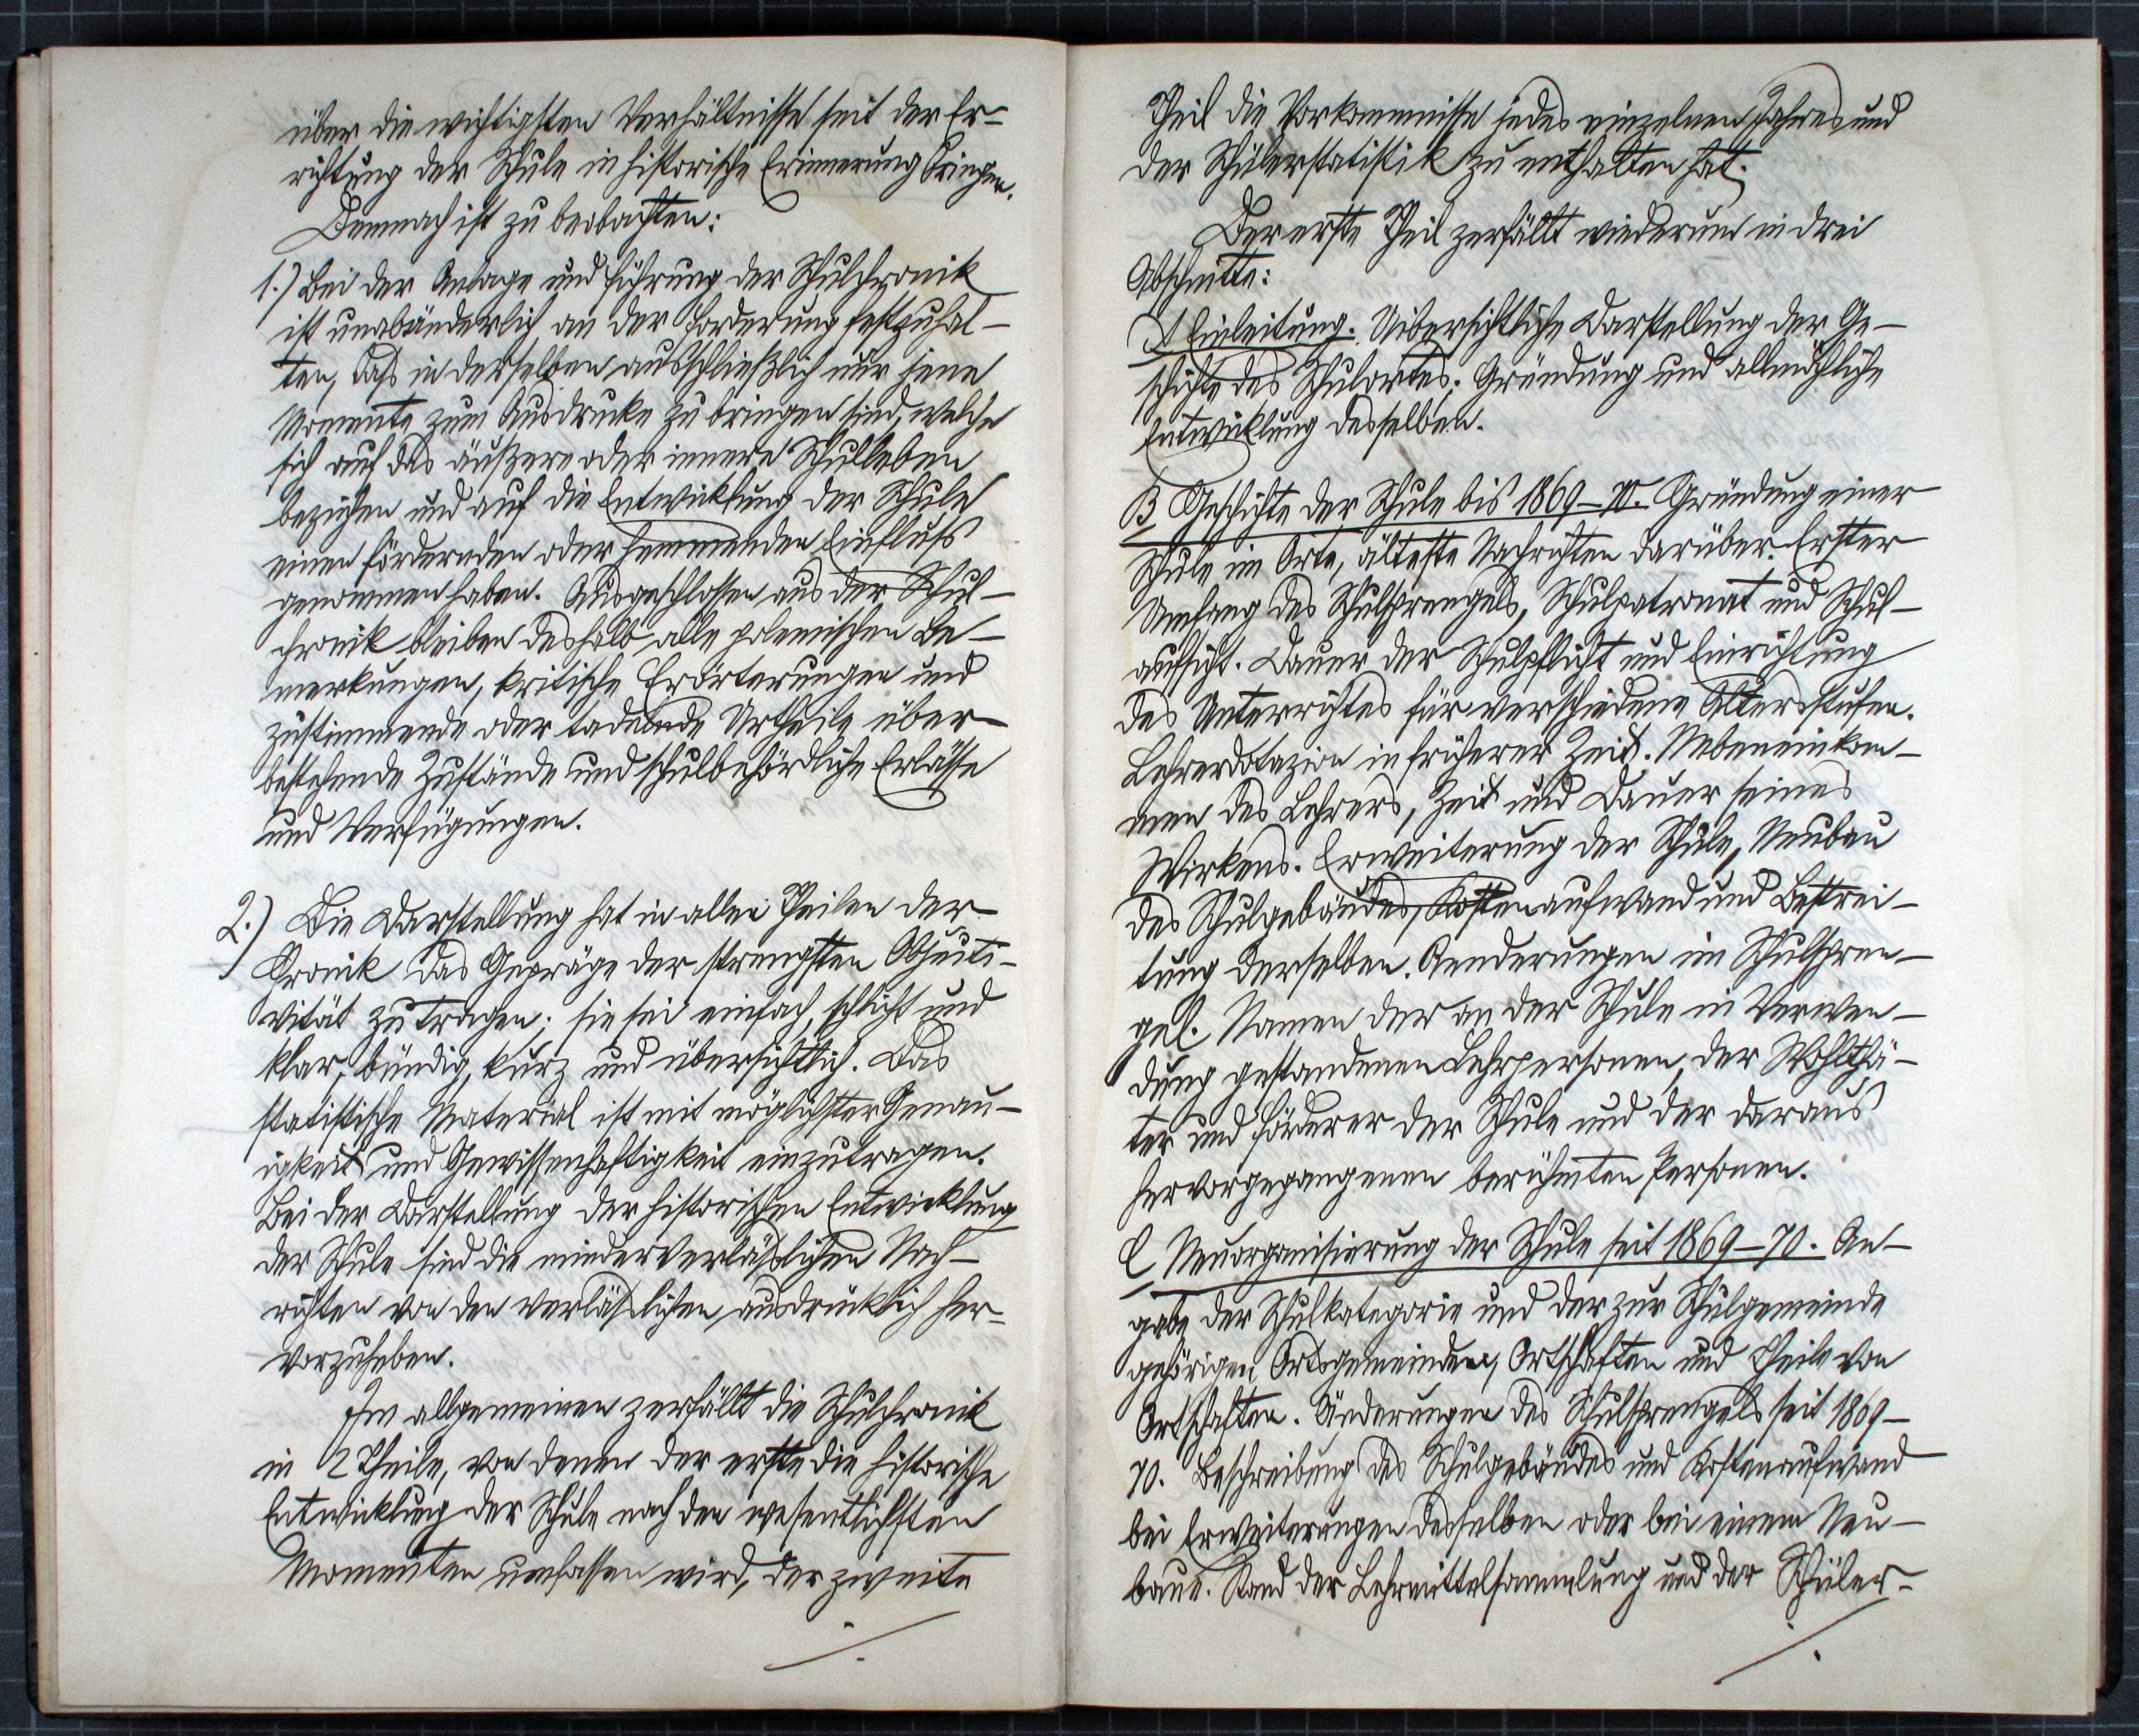 über die wichtigsten Verhältnisse seit der Er-
richtung der Schule in historische Erinnerung bringen.
Demnach ist zu beobachten:
1.) Bei der Anlage und Führung der Schulchronik
ist unabänderlich an der Forderung festzuhal-
ten, daß in derselben ausschließlich nur jene
Momente zum Ausdrucke zu bringen sind, welche
sich auf das äußere oder innere Schulleben
beziehen und auf die Entwicklung der Schule
einen fördernden oder hemmenden Einfluß
genommen haben. Ausgeschlossen aus der Schul-
chronik bleiben deshalb alle polemischen Be-
merkungen, kritische Erörterungen und
zustimmende oder tadelnde Urtheile über
bestehende Zustände und schulbehördliche Erlässe
und Verfügungen.
2.) Die Darstellung hat in allen Theilen der
Chronik das Gepräge der strengsten Objecti-
vität zu tragen; sie sei einfach, schlicht und
klar, bündig, kurz und übersichtlich. Das
statistische Material ist mit möglichster Genau-
igkeit und Gewissenhaftigkeit einzutragen.
Bei der Darstellung der historischen Entwicklung
der Schule sind die minderverläßlichen Nach-
richten von den verläßlichen ausdrücklich her-
vorzuheben.
Im allgemeinen zerfällt die Schulchronik
in 2 Theile, von denen der erste die historische
Entwicklung der Schule nach den wesentlichsten
Momenten umfassen wird, der zweite
./.
Theil die Vorkommnisse jedes einzelnen Jahres und
der Schülerstatistik zu enthalten hat.
Der erste Theil zerfällt wiederum in drei
Abschnitte:
A Einleitung. Uibersichtliche Darstellung der Ge-
schichte des Schulortes. Gründung und allmähliche
Entwicklung desselben.
B Geschichte der Schule bis 1869-70. Gründung einer
Schule im Orte, älteste Nachrichten darüber. Erster
Umfang des Schulsprengels, Schulpatronat und Schul-
aufsicht. Dauer der Schulpflicht und Einrichtung
des Unterrichtes für verschiedene Altersstufen.
Lehrerdotazion in früherer Zeit. Nebeneinkom-
men des Lehrers, Zeit und Dauer seines
Wirkens. Erweiterung der Schule, Neubau
des Schulgebäudes, Kostenaufwand und Bestrei-
tung derselben. Aenderungen im Schulspren-
gel. Namen der an der Schule in Verwen-
dung gestandenen Lehrpersonen, der Wohlthä-
ter und Förderer der Schule und der daraus
hervorgegangenen berühmten Personen.
C Neuorganisierung der Schule seit 1869-70. An-
gabe der Schulkategorie und der zur Schulgemeinde
gehörigen Ortsgemeinden, Ortschaften und Theile von
Ortschaften. Änderungen des Schulsprengels seit 1869-
70. Beschreibung des Schulgebäudes und Kostenaufwand
bei Erweiterungen desselben oder bei einem Neu-
baue. Stand der Lehrmittelsammlung und der Schüler-
./.